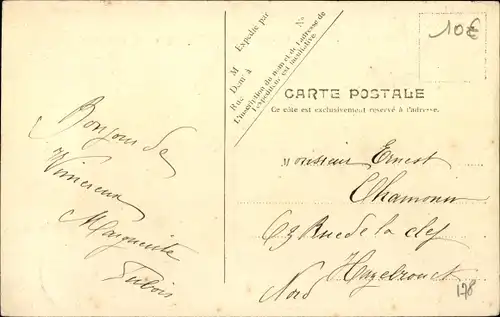 Bonjour de
Wimereux
Marguerite
Dubois
Expédié par
M
Demt à
Rue
No
L'inscription du nom et de l'adresse de
l'expéditeur est facultative.
10€
CARTE POSTALE
Ce côté est exclusivement réservé à l'adresse.
Monsieur Ernest
69 Rue de la clef
Hazebrouck
Nord
178